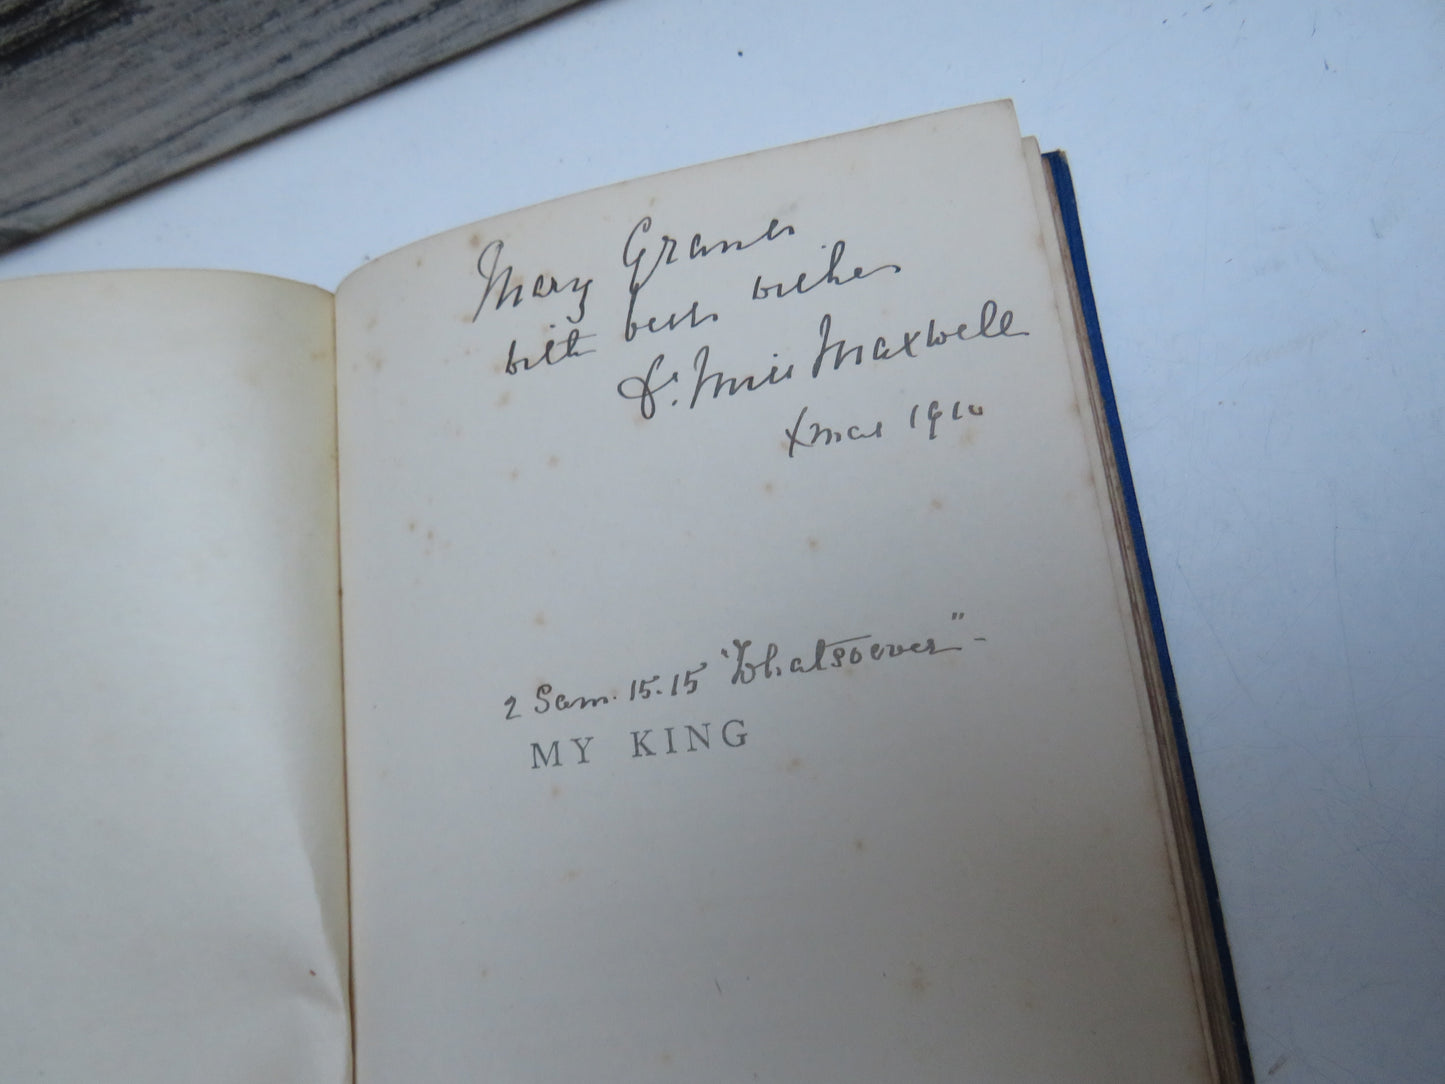 Mary Graves
with best wishes
Maxwell
Xmas 1910
2 Sam. 15.15 "Whatsoever" -
MY KING